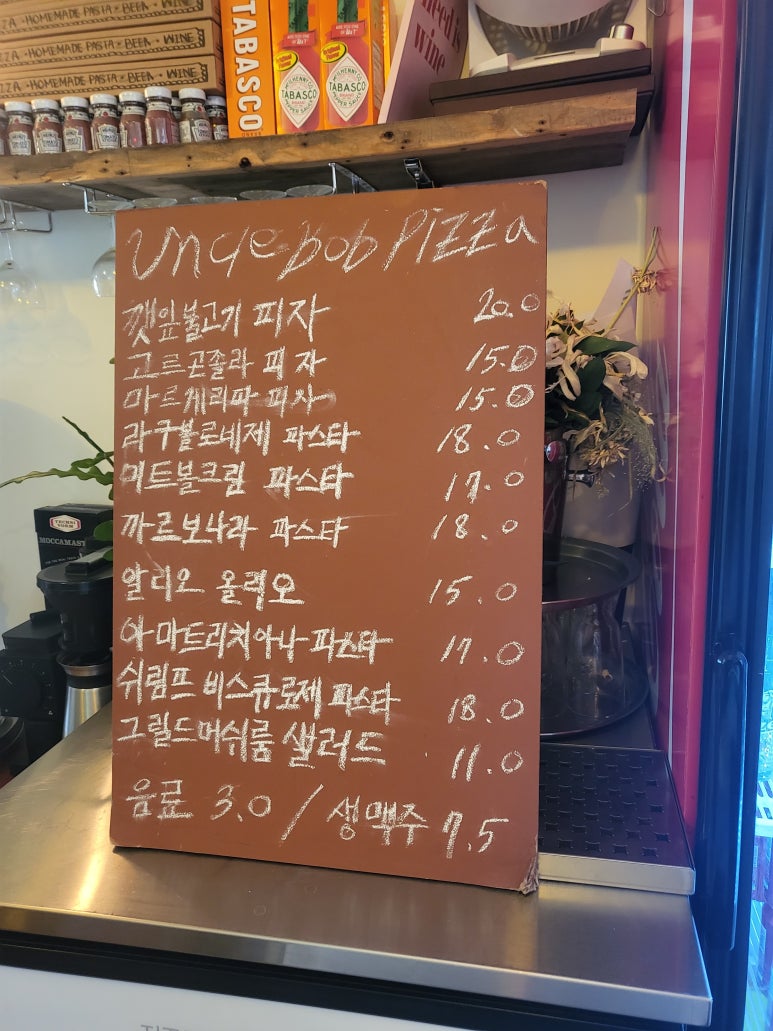 ZZA • HOMEMADE PASTA • BEER • WINE
ZZA • HOMEMADE PASTA • BEER • WINE
TABASCO
TABASCO
TABASCO
need is
wine
Uncle bob Pizza
깻잎불고기 피자 20.0
고르곤졸라 피자 15.0
마르게리따 피자 15.0
라구볼로네제 파스타 18.0
미트볼크림 파스타 17.0
까르보나라 파스타 18.0
알리오 올리오 15.0
아마트리치아나 파스타 17.0
쉬림프 비스큐로제 파스타 18.0
그릴드머쉬룸 샐러드 11.0
음료 3.0 / 생맥주 7.5
TECHNI
VORM
MOCCAMAST